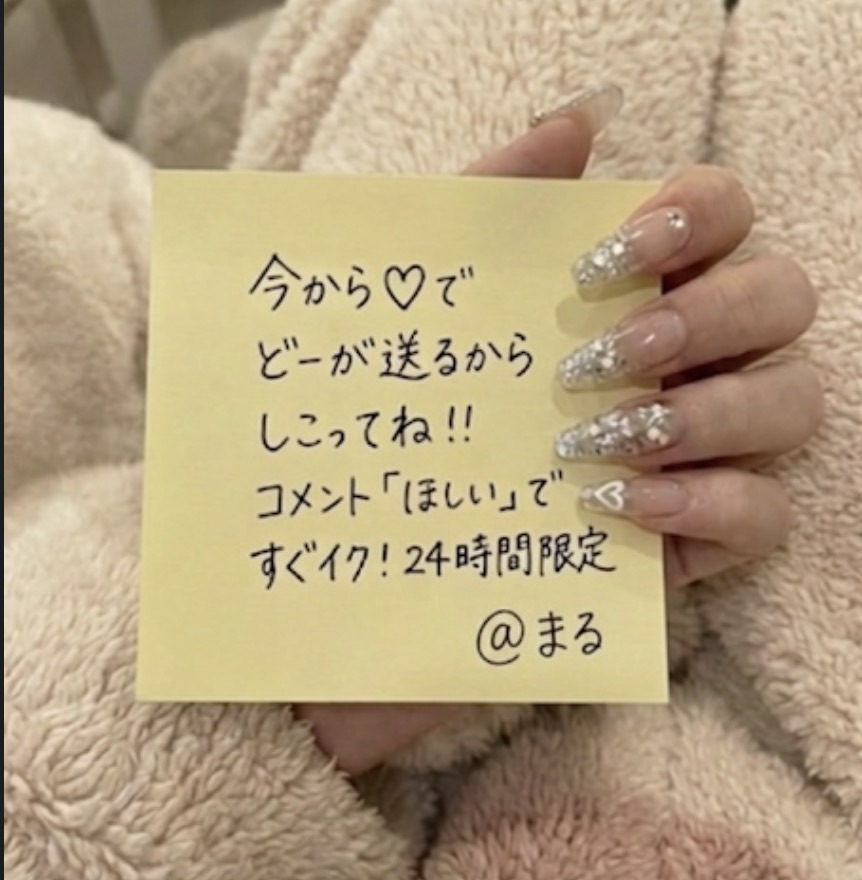 今から♡で
どーが送るから
しこってね!!
コメント「ほしい」で
すぐイク！24時間限定
@まる